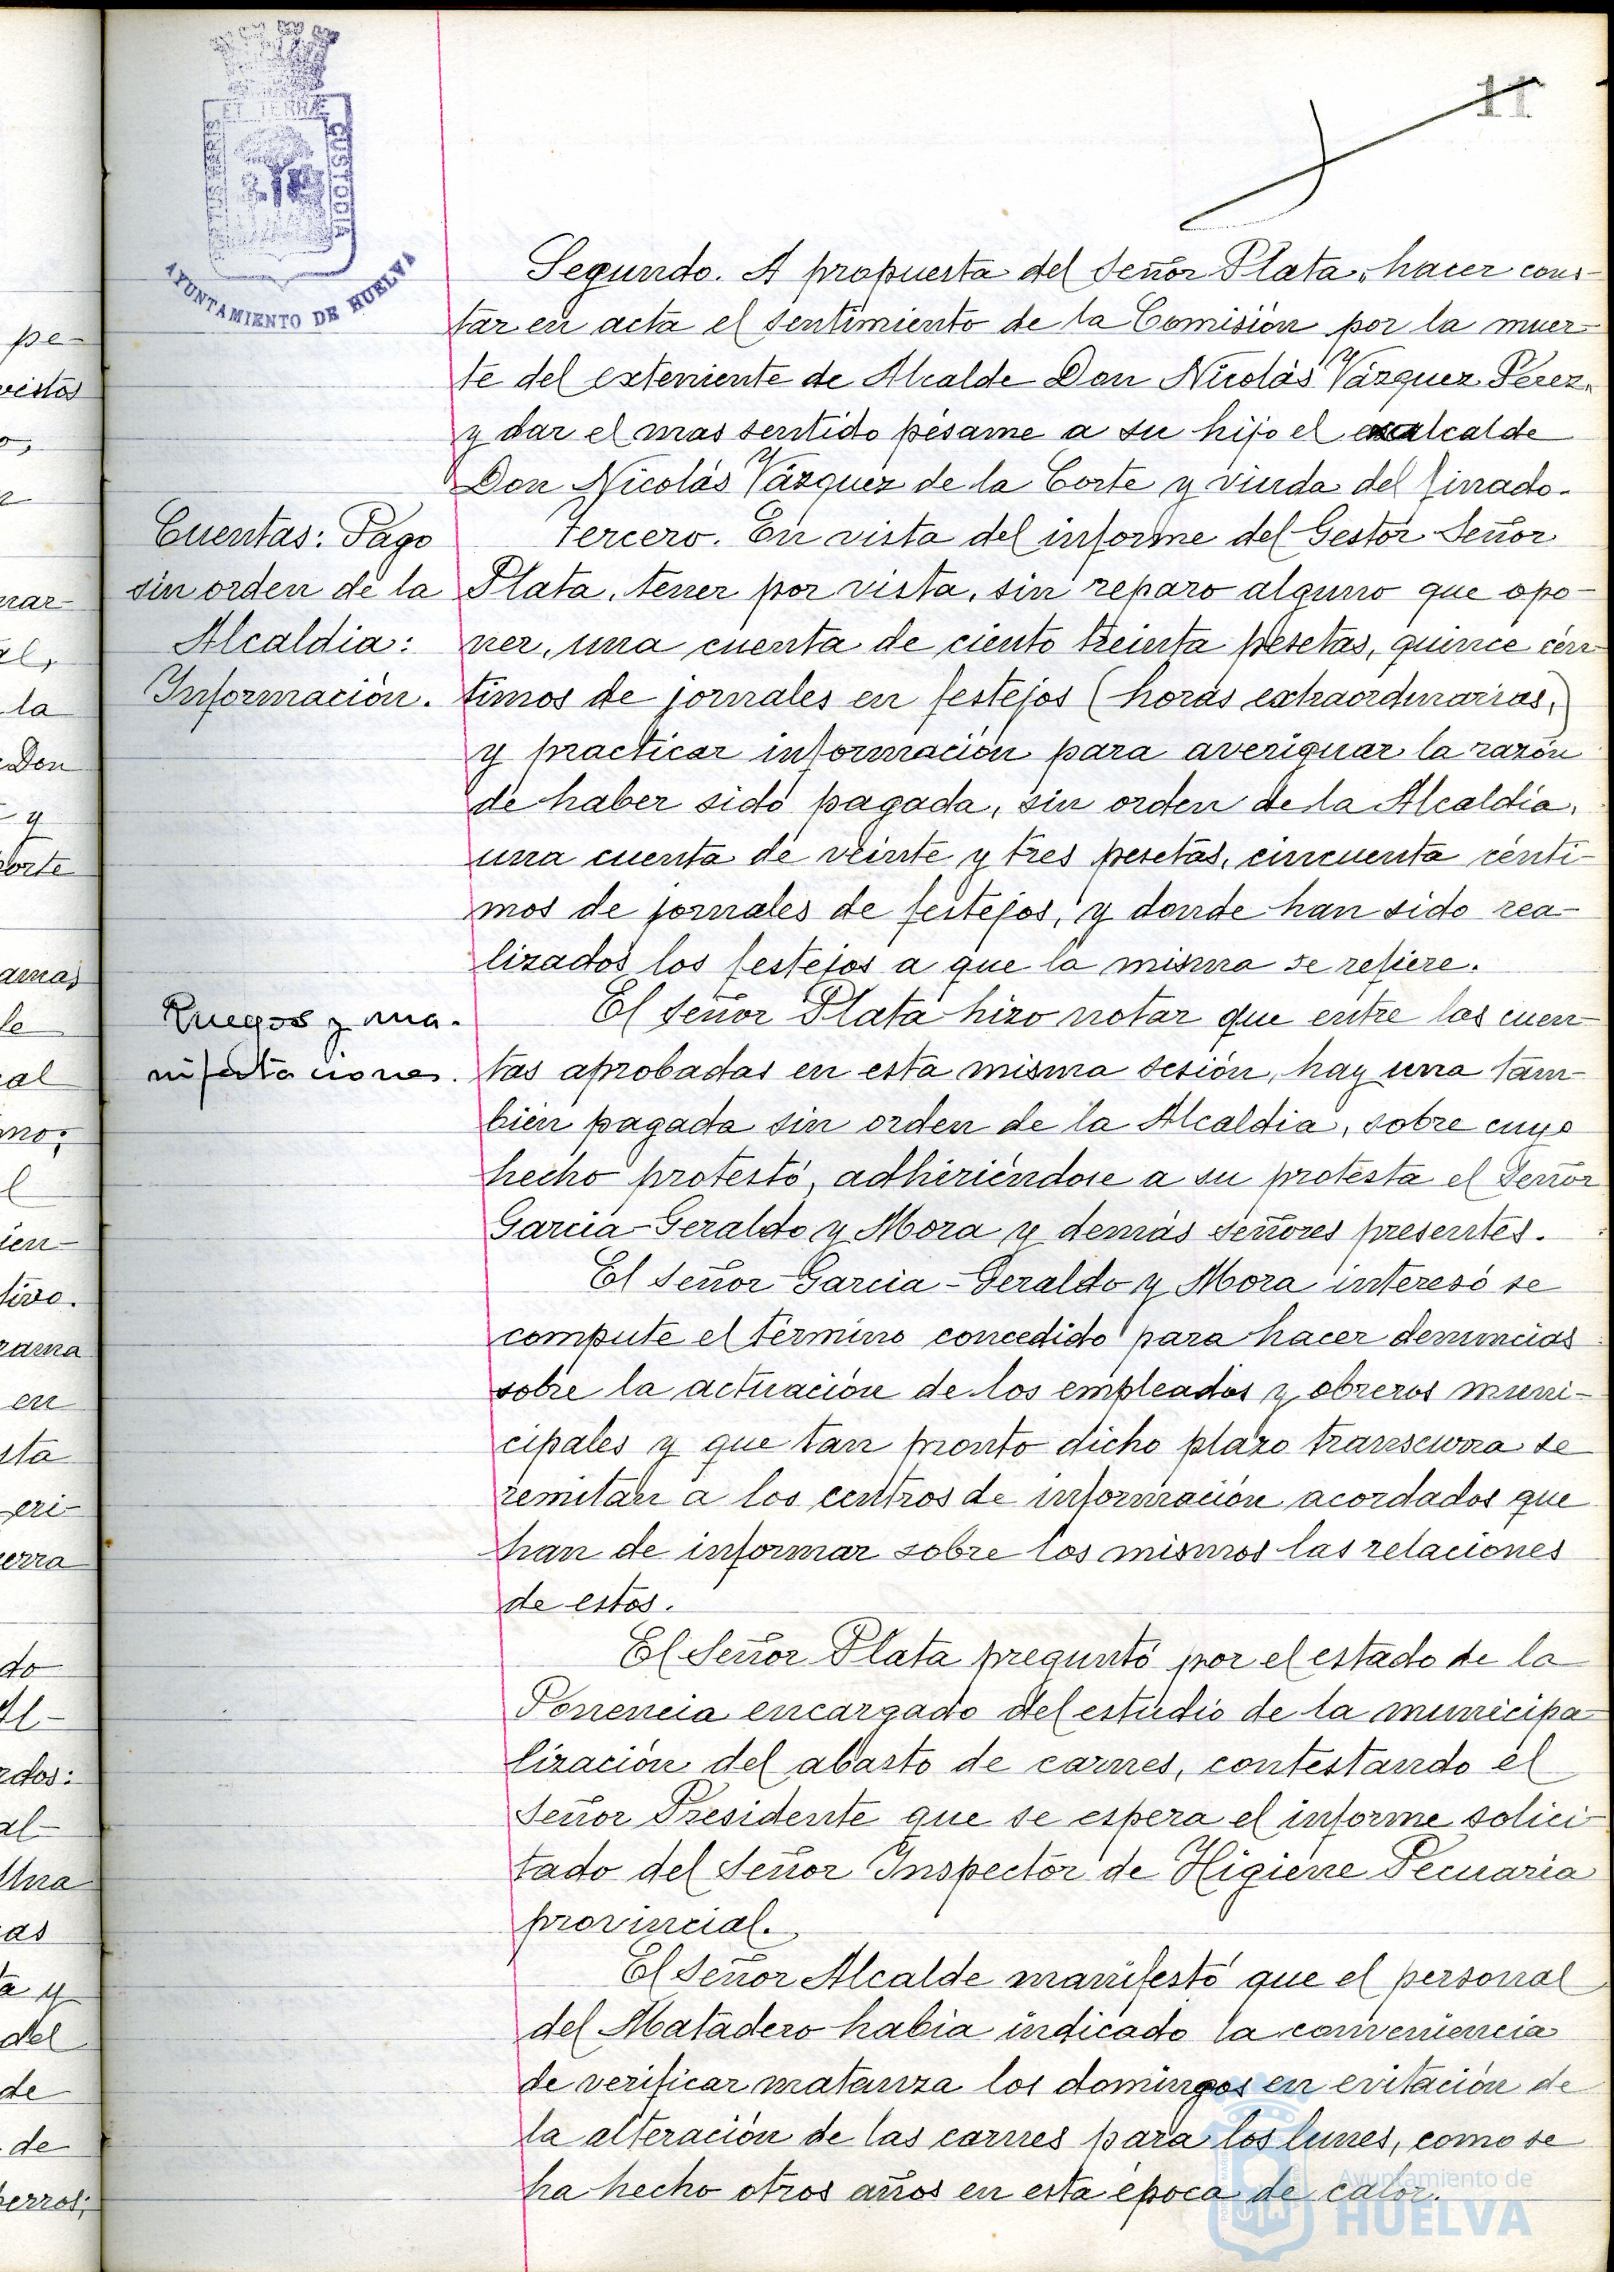 11
ET TERRAE CUSTODIA
AYUNTAMIENTO DE HUELVA
Segundo. A propuesta del Señor Plata, hacer cons-
tar en acta el sentimiento de la Comisión por la muer-
te del exteniente de Alcalde Don Nicolás Vázquez Perez,
y dar el mas sentido pésame a su hijo el exalcalde
Don Nicolás Vázquez de la Corte y viuda del finado.
Cuentas: Pago
sin orden de la
Alcaldia:
Información.
Tercero. En vista del informe del Gestor Señor
Plata, tener por vista, sin reparo alguno que opo-
ner, una cuenta de ciento treinta pesetas, quince cén-
timos de jornales en festejos (horas extraordinarias,)
y practicar información para averiguar la razón
de haber sido pagada, sin orden de la Alcaldía,
una cuenta de veinte y tres pesetas, cincuenta cénti-
mos de jornales de festejos, y donde han sido rea-
lizados los festejos a que la misma se refiere.
Ruegos y ma-
nifestaciones.
El Señor Plata hizo notar que entre las cuen-
tas aprobadas en esta misma sesión, hay una tam-
bién pagada sin orden de la Alcaldia, sobre cuyo
hecho protestó, adhiriéndose a su protesta el Señor
Garcia-Geraldo y Mora y demás señores presentes.
El Señor Garcia-Geraldo y Mora interesó se
compute el término concedido para hacer denuncias
sobre la actuación de los empleados y obreros muni-
cipales y que tan pronto dicho plazo transcurra se
remitan a los centros de información acordados que
han de informar sobre los mismos las relaciones
de estos.
El Señor Plata preguntó por el estado de la
Ponencia encargado del estudio de la municipa-
lización del abasto de carnes, contestando el
Señor Presidente que se espera el informe solici-
tado del Señor Inspector de Higiene Pecuaria
provincial.
El Señor Alcalde manifestó que el personal
del Matadero habia indicado la conveniencia
de verificar matanza los domingos en evitación de
la alteración de las carnes para los lunes, como se
ha hecho otros años en esta época de calor.
Ayuntamiento de
HUELVA